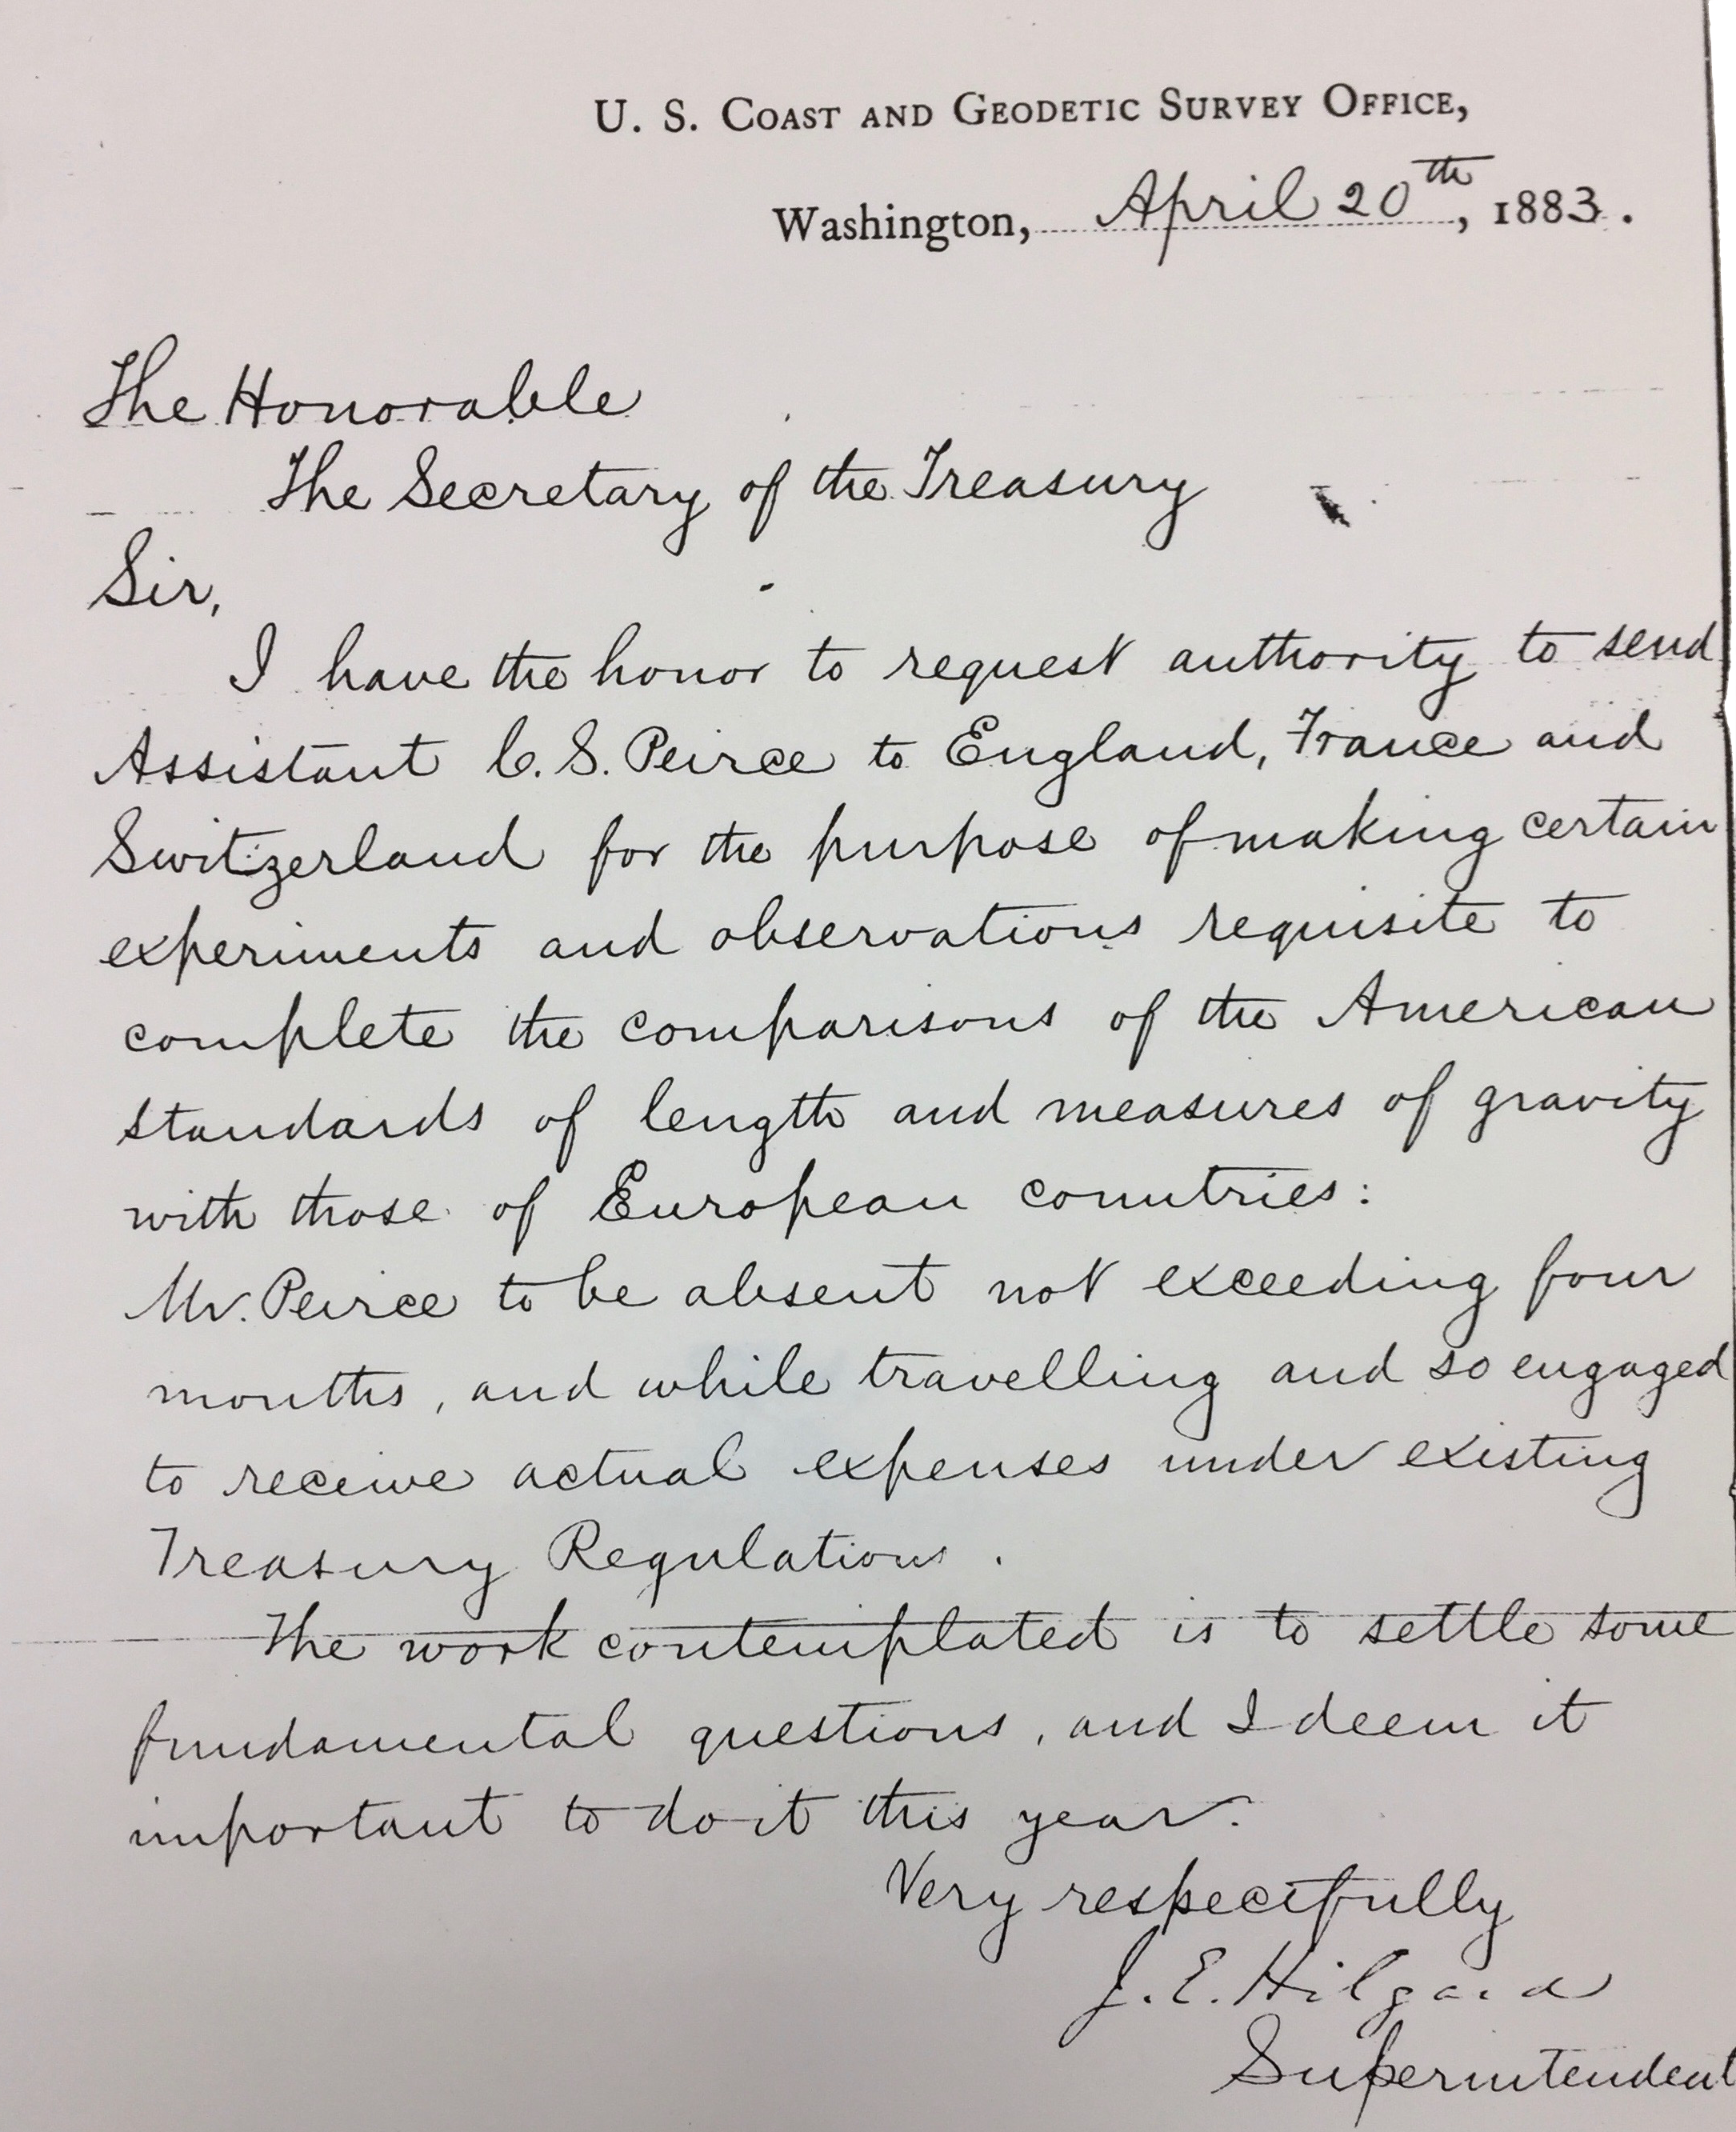 U. S. COAST AND GEODETIC SURVEY OFFICE,
Washington, April 20th, 1883.
The Honorable
The Secretary of the Treasury
Sir,
I have the honor to request authority to send
Assistant C. S. Peirce to England, France and
Switzerland for the purpose of making certain
experiments and observations requisite to
complete the comparisons of the American
standards of length and measures of gravity
with those of European countries:
Mr. Peirce to be absent not exceeding four
months, and while travelling and so engaged
to receive actual expenses under existing
Treasury Regulations.
The work contemplated is to settle some
fundamental questions, and I deem it
important to do it this year.
Very respectfully
J. E. Hilgard
Superintendent